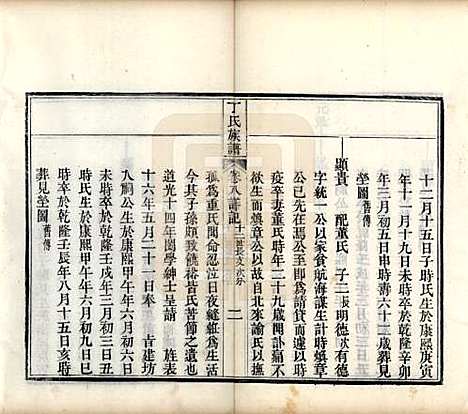 十二月十五日子時氏生於康熙庚寅
年十二月十九日未時卒於乾隆辛卯
年三月初五日申時壽六十二歲葬見
塋圖舊傳
顯貴 公 配董氏 子二振明德次有德
字統一公以家貧航海謀生計時煥章
公已先在焉公至即為請貸而虛以時
疫卒妻董氏時年二十九歲聞訃痛不
欲生而煥章公自北來諭氏以撫
孤為重氏聞命忍泣日夜縫紉為生
今其子孫頗饒裕皆苦節之遺也
道光十四年閤學紳士呈請 旌表
十六年五月二十一日奉 旨建坊
入祠公生於康熙甲午年六月初九日
未時卒於乾隆壬戌年三月初三日丑
時氏生於康熙甲午年六月初九日巳
時卒於乾隆壬辰年八月十五日亥時
葬見塋圖舊傳
丁氏族譜
卷八譜記
十二世
二